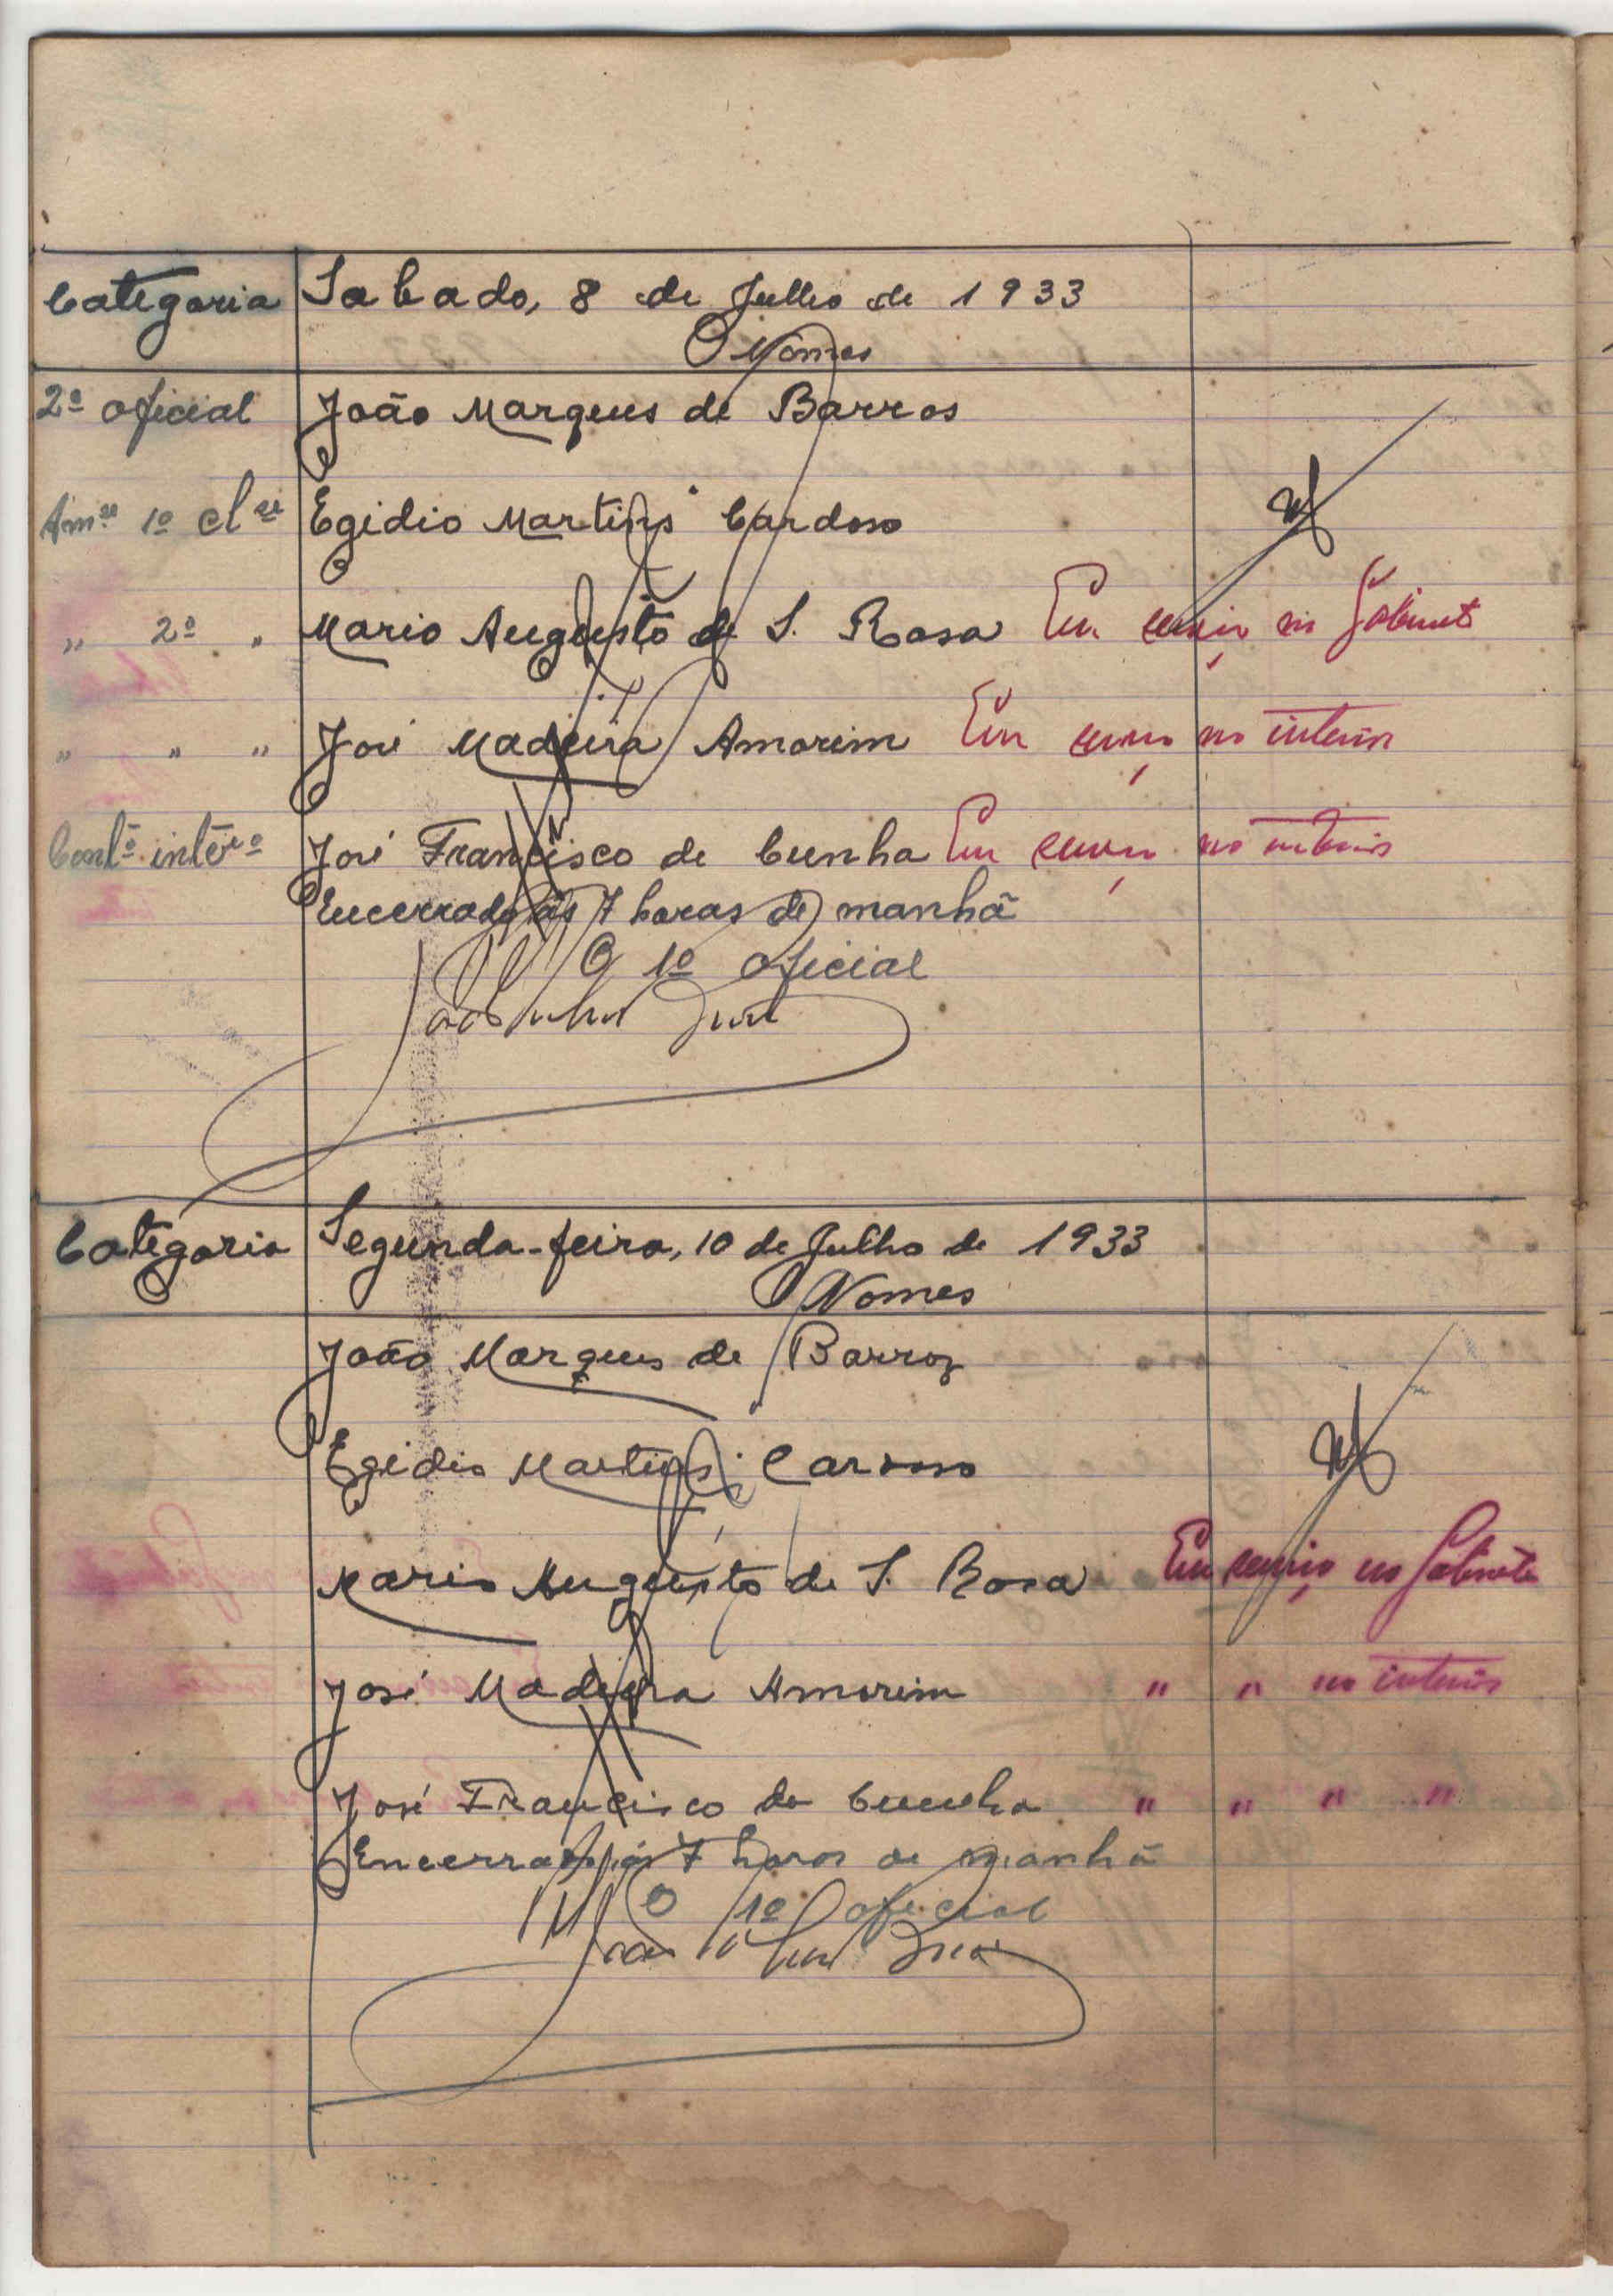 Categoria Sabado, 8 de Julho de 1933
Nomes
2º oficial João Marques de Barros
1º Egidio Martins Cardoso
" 2º " Mario Augusto de S. Rosa Em serviço no Gabinete
" " " José Madeira Amorim Em serviço no interior
José Francisco de Cunha Em serviço no interior
Encerrado ás 7 horas de manhã
O 1º oficial
Categoria Segunda-feira, 10 de Julho de 1933
Nomes
João Marques de Barros
Egidio Martins Cardoso
Mario Augusto de S. Rosa Em serviço no Gabinete
José Madeira Amorim " " no interior
José Francisco da Cunha " " " "
Encerrado ás 7 horas de manhã
O 1º oficial